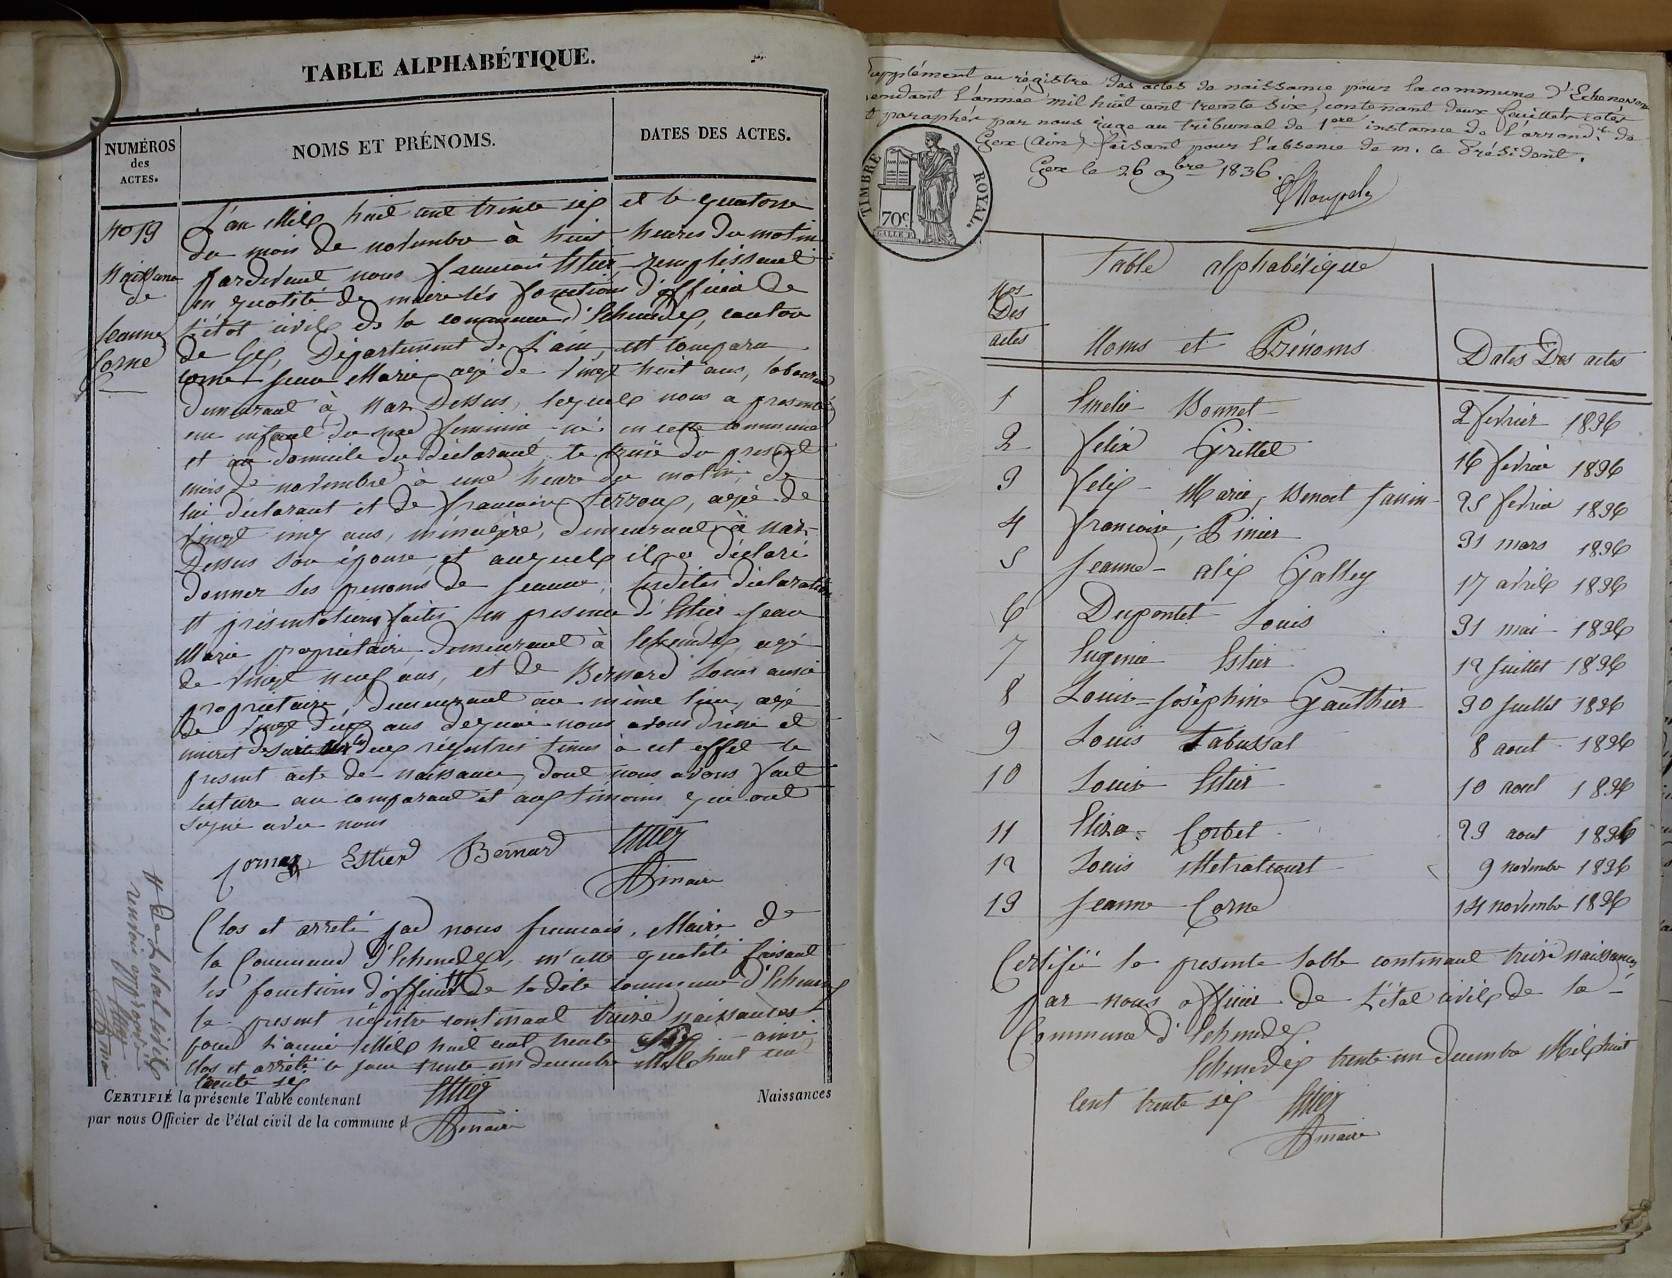 TABLE ALPHABÉTIQUE.
NUMÉROS
des
ACTES.
NOMS ET PRÉNOMS.
DATES DES ACTES.
No 13
Naissance
de
Jeanne
Corne
L'an Mil huit cent trente six et le quatorze
du mois de novembre à huit heures du matin
pardevant nous francois Estier, remplissant
en qualité de maire les fonctions d'officier de
l'état civil de la commune d'Echenevex, canton
de Gex, Département de l'ain, est comparu
corne Jean Marie agé de vingt huit ans, laboureur
demeurant à Naz Dessus, lequel nous a presenté
une enfant du sexe feminin né en cette commune
et au domicile du déclarant le treize du present
mois de novembre à une heure du matin, de
lui déclarant et de francoise Perroux, agée de
vingt cinq ans, ménagère, demeurant à Naz-
Dessus son épouse, et auquel il a déclaré
donner les prenoms de Jeanne, lesdites déclaration
et présentations faites en presence d'Estier Jean
Marie propriétaire, demeurant à Echenevex, agé
de vingt neuf ans, et de Bernard Louis aussi
propriétaire, demeurant au même lieu, agé
de vingt deux ans dequoi nous avons dressé et
inscrit de suite sur les deux régistres tenus à cet effet le
present acte de naissance, dont nous avons fait
lecture au comparant et aux temoins qui ont
signé avec nous
Corne Estier Bernard Estier
maire
Clos et arreté par nous francois, Maire de
la Commune d'Echenevex, en cette qualité faisant
les fonctions d'officier # de ladite commune d'Echenevex
le present régistre contenant treize naissances
pour l'année Mil huit cent trente six
Clos et arrêté le jour trente un decembre Mil huit cent
trente six
# de l'etat civil
renvoi approuvé
Estier
maire
CERTIFIÉ la présente Table contenant Naissances
par nous Officier de l'état civil de la commune d
Estier
maire
Supplément au régistre des actes de naissance pour la commune d'Echenevex
pendant l'année mil huit cent trente six, contenant deux feuillets cotés
et paraphés par nous juge au tribunal de 1ere instance de l'arrondt. de
Gex (Ain) faisant pour l'absence de m. le Président.
Gex le 26 9bre 1836.
TIMBRE ROYAL.
70c.
Table alphabétique
Nos
Des
actes
Noms et Prénoms
Dates Des actes
1 Emelie Bonnet 2 fevrier 1836
2 felix Grittel 16 fevrier 1836
3 felix Marie, Benoet 25 fevrier 1836
4 francoise, Pinier 31 mars 1836
5 Jeanne alix Galley 17 avril 1836
6 Dupontet Louis 31 mai 1836
7 Eugenie Estier 12 Juillet 1836
8 Louise Joséphine Gauthier 30 Juillet 1836
9 Louis Tabussat 8 aout 1836
10 Louise Estier 10 aout 1836
11 Eliza Corbet 23 aout 1836
12 Louis 9 novembre 1836
13 Jeanne Corne 14 novembre 1836
Certifié la presente table contenant treize naissances,
par nous officier de l'état civil de la
Commune d'Echenevex
Echenevex trente un Decembre Mil huit
cent trente six Estier
maire